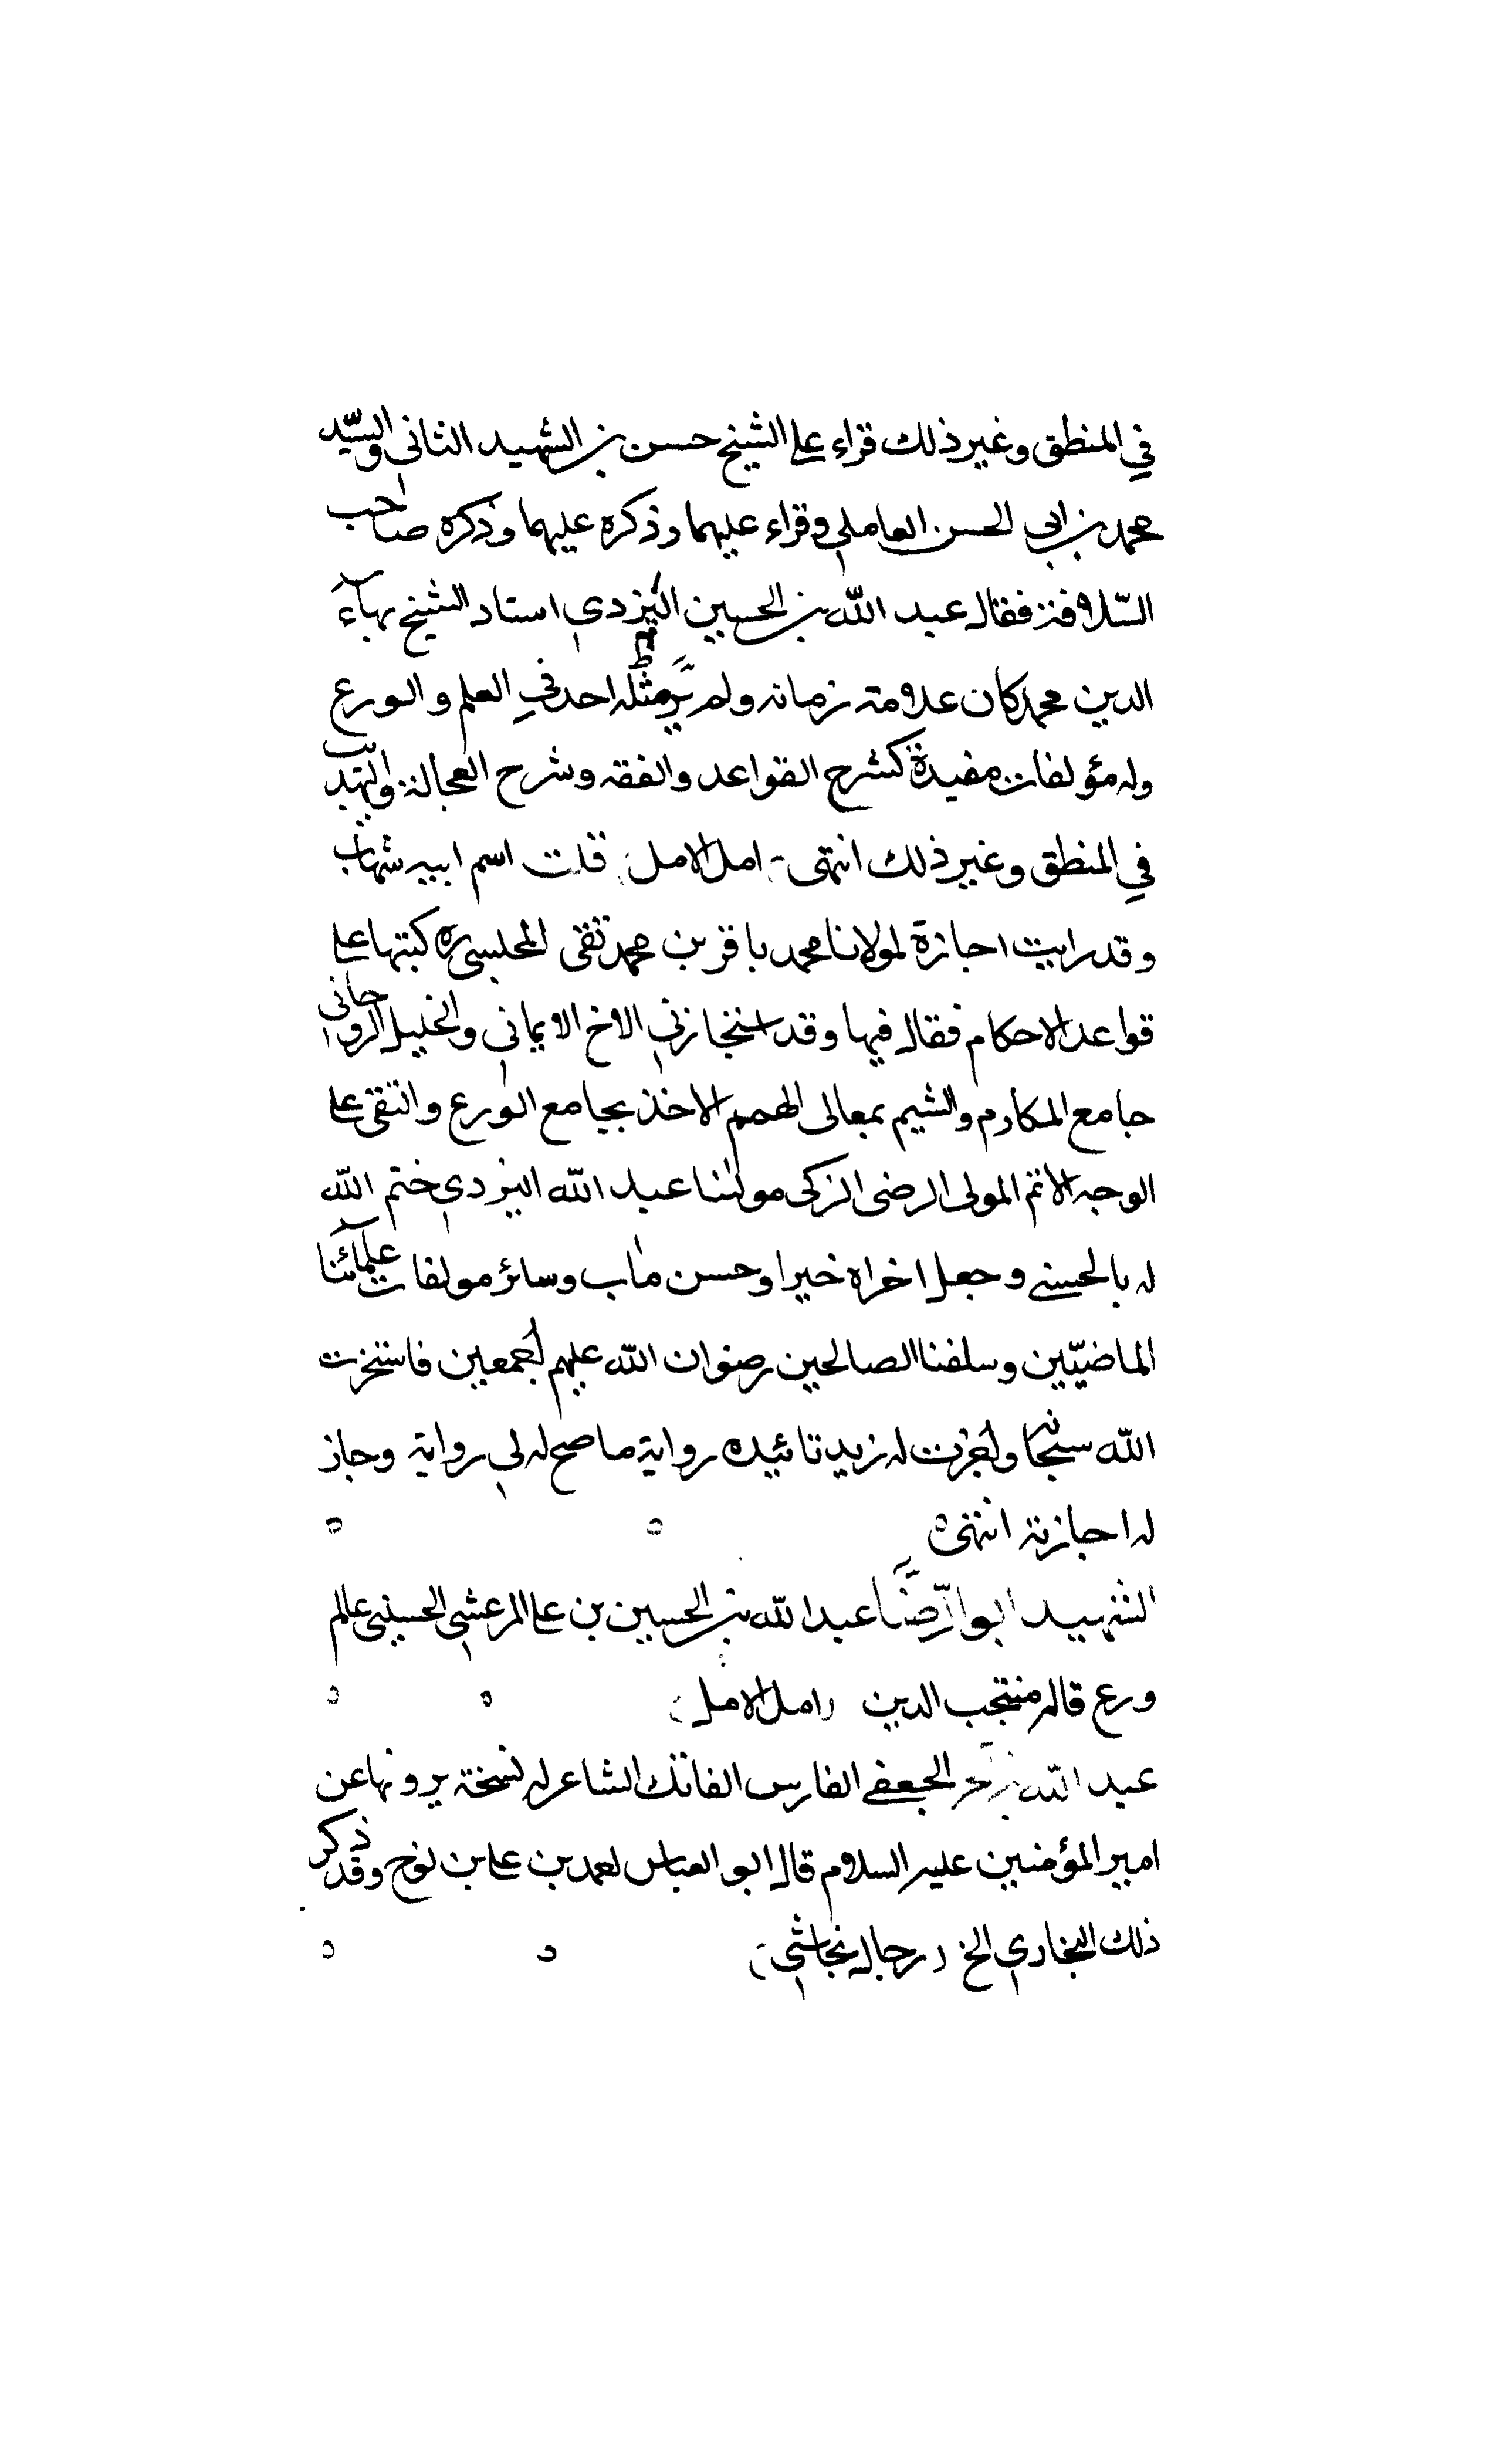 في المنطق وغير ذلك قراء على الشيخ حسن بن الشهيد الثاني والسيّد
محمد بن ابي الحسن العاملي وقراء عليهما وذكره عليهما وذكره صاحب
السّلافة فقال عبد الله بن الحسين اليزدي استاد الشيخ بهآء
الدين محمد كان علامة زمانه ولم يَر مثله احد في العلم والورع
وله مؤلفات مفيدة كشرح القواعد والفقه وشرح العجالة والتهذيب
في المنطق وغير ذلك انتهى امل الامل قلت اسم ابيه شهاب
وقد رايت اجازة لمولانا محمد باقر بن محمد تقى المجلسي ره كبتها على
قواعد الاحكام فقال فيها وقد استجازني الاخ الايماني والخليل الروحاني
جامع المكارم والشيم بمعالى الهمم الاخذ بجامع الورع والتقى على
الوجه الاتم المولى الرضى الزكى مولٰنا عبد الله اليزدي ختم الله
له بالحسنى وجعل اخراه خيرا وحسن ماب وسائر مولفات علمآئنا
الماضيّين وسلفنا الصالحين رضوان الله عليهم اجمعين فاستخرت
الله سبحانه واجزت له زيد تائيده رواية ما صح له لي رواية وجاز
له اجازته انتهى
الشهيد ابو الرّضَا عبد الله بن الحسين بن على المرعشي الحسيني عالم
ورع قاله منتجب الدين (امل الامل)
عبد الله بن حر الجعفي الفارس الفاتك الشاعر له نسخة يرونها عن
امير المؤمنين عليه السلام قال ابو العباس احمد بن على بن نوح وقد ذكر
ذلك البخاري الخ (رجال نجاشي)